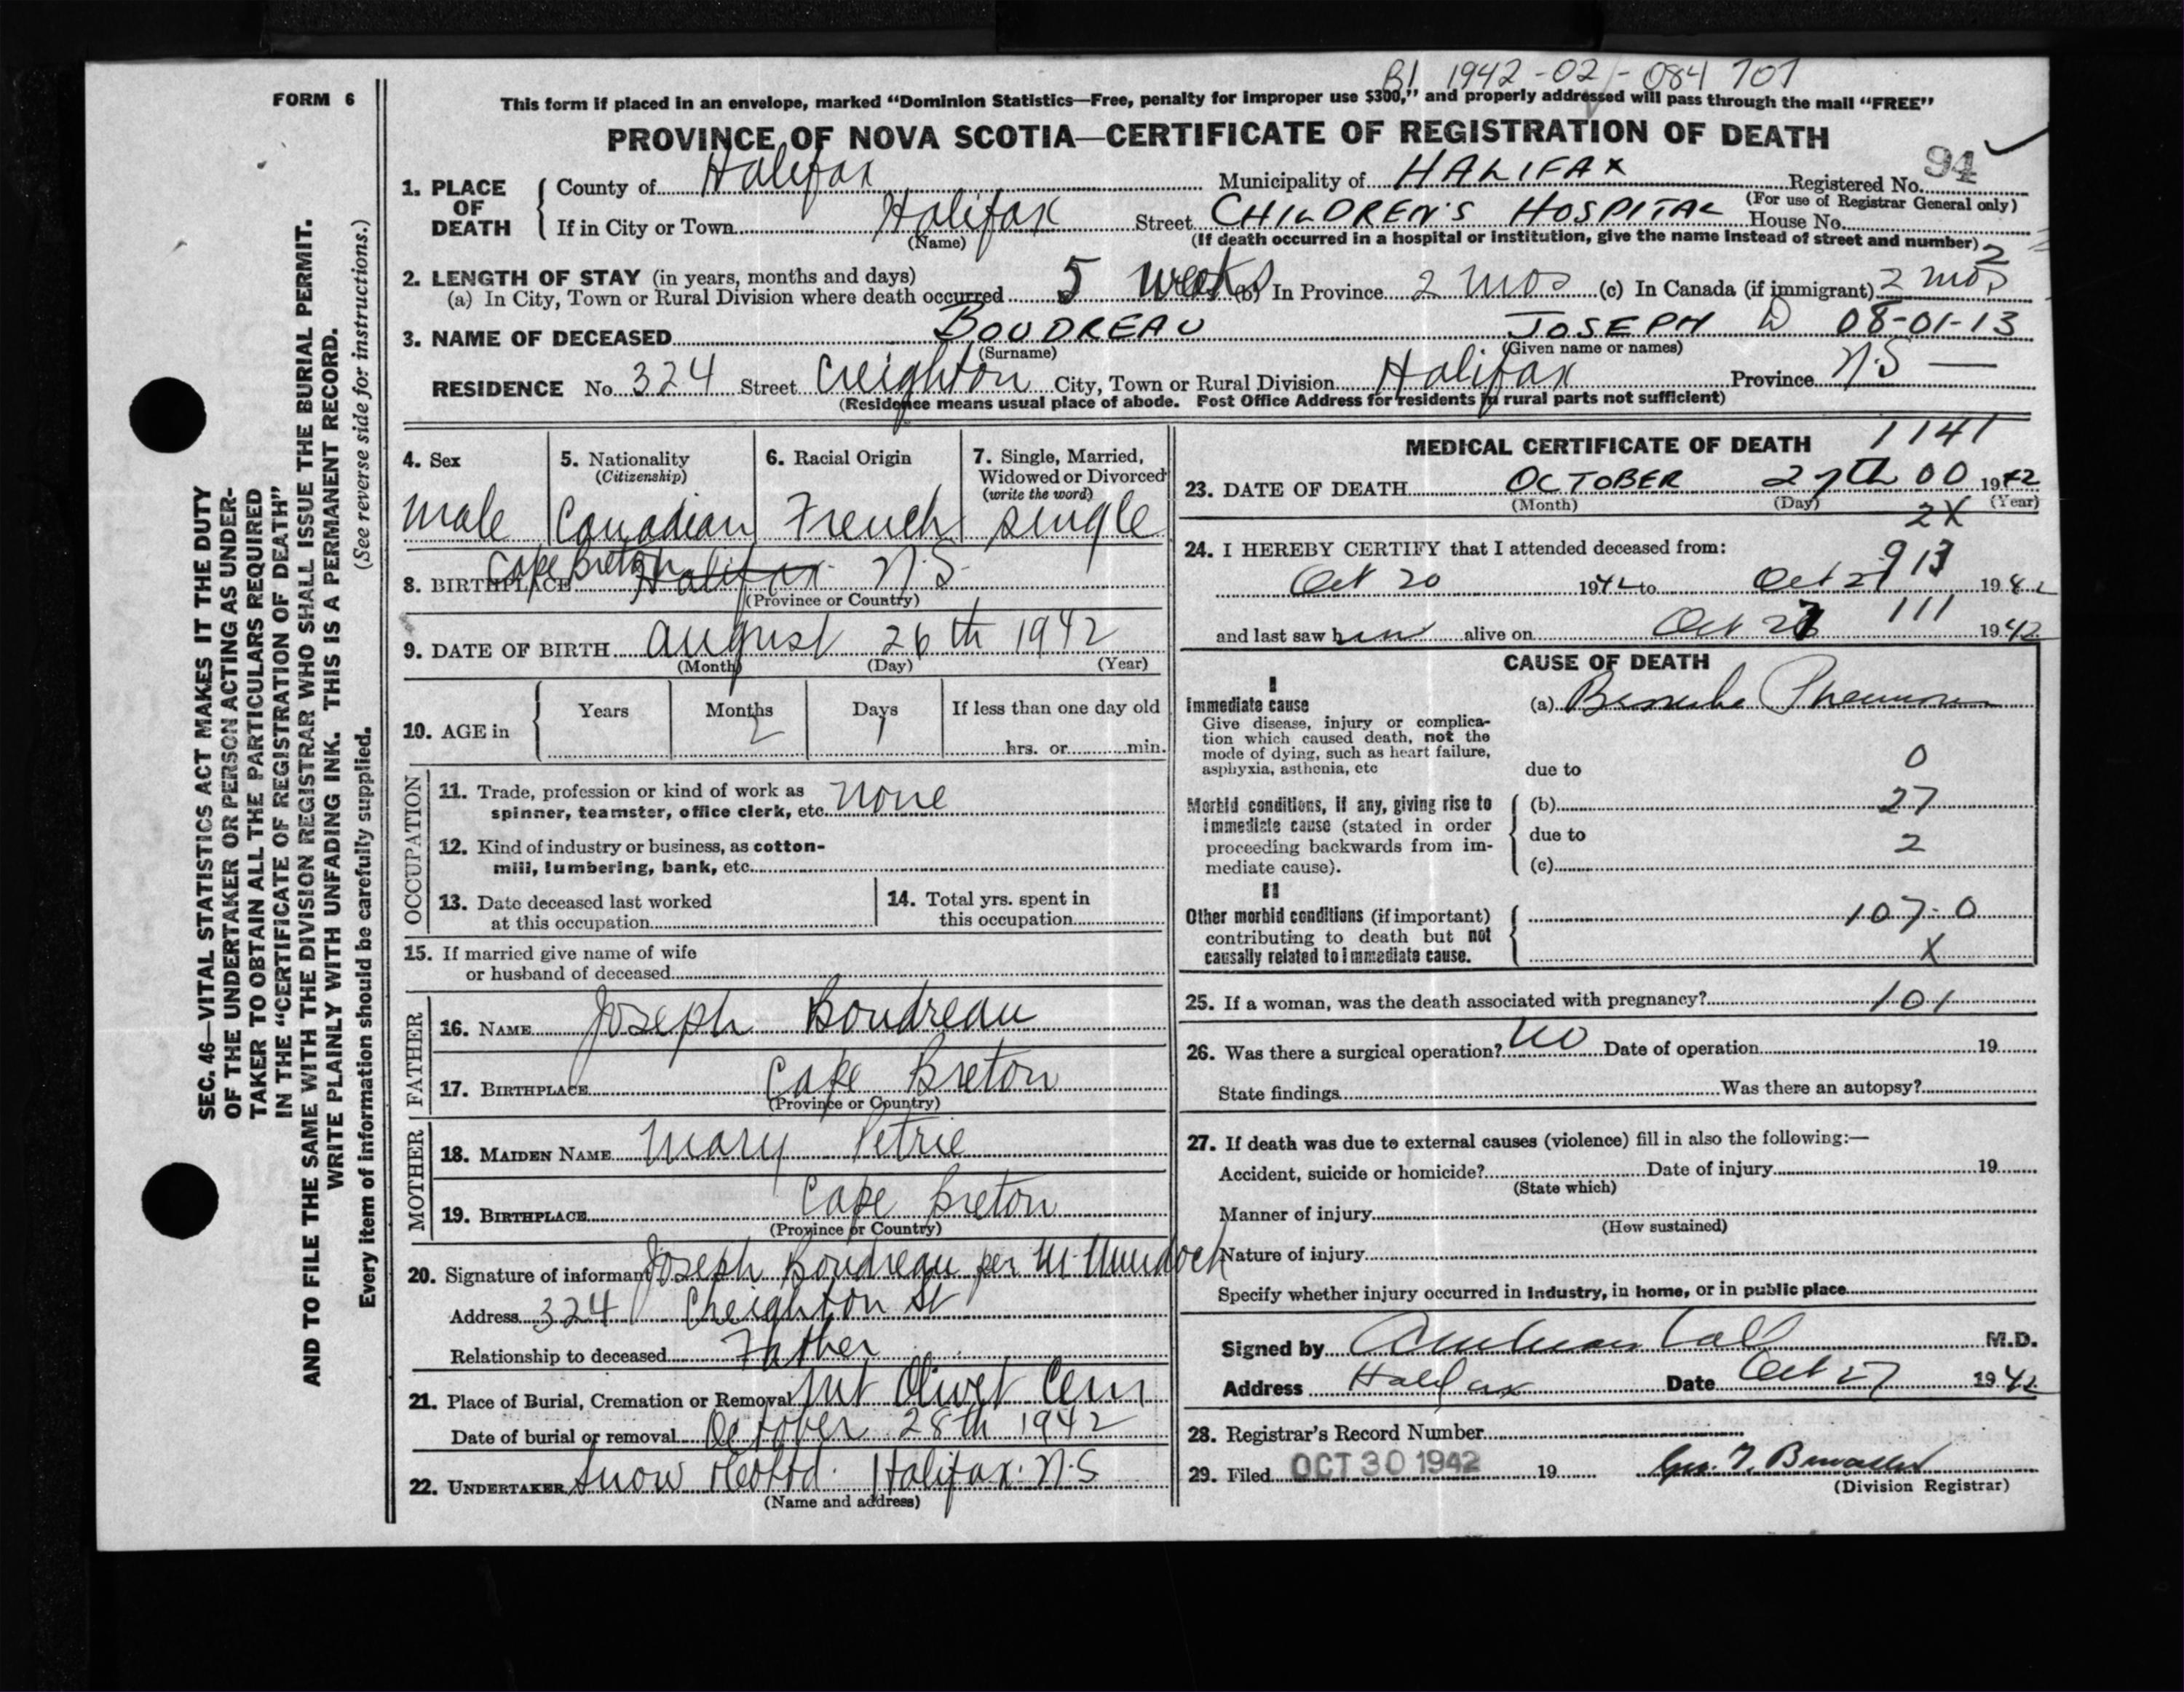 B1 1942-02-084707
FORM 6
This form if placed in an envelope, marked "Dominion Statistics—Free, penalty for improper use $300," and properly addressed will pass through the mail "FREE"
PROVINCE OF NOVA SCOTIA—CERTIFICATE OF REGISTRATION OF DEATH
94
1. PLACE OF DEATH County of Halifax Municipality of HALIFAX Registered No.
(For use of Registrar General only)
If in City or Town Halifax Street CHILDREN'S HOSPITAL House No.
(Name) (If death occurred in a hospital or institution, give the name instead of street and number)
2
2. LENGTH OF STAY (in years, months and days)
(a) In City, Town or Rural Division where death occurred 5 weeks (b) In Province 2 mos (c) In Canada (if immigrant) 2 mos
3. NAME OF DECEASED BOUDREAU JOSEPH D 08-01-13
(Surname) (Given name or names)
RESIDENCE No. 324 Street Creighton City, Town or Rural Division Halifax Province N.S —
(Residence means usual place of abode. Post Office Address for residents in rural parts not sufficient)
4. Sex 5. Nationality 6. Racial Origin 7. Single, Married,
(Citizenship) Widowed or Divorced
(write the word)
male Canadian French single
Cape Breton
8. BIRTHPLACE Halifax N.S
(Province or Country)
9. DATE OF BIRTH August 26th 1942
(Month) (Day) (Year)
10. AGE in Years Months Days If less than one day old
2 1
hrs. or min.
OCCUPATION
11. Trade, profession or kind of work as
spinner, teamster, office clerk, etc. none
12. Kind of industry or business, as cotton-
mill, lumbering, bank, etc.
13. Date deceased last worked 14. Total yrs. spent in
at this occupation this occupation
15. If married give name of wife
or husband of deceased
FATHER
16. NAME Joseph Boudreau
17. BIRTHPLACE Cape Breton
(Province or Country)
MOTHER
18. MAIDEN NAME Mary Petrie
19. BIRTHPLACE Cape Breton
(Province or Country)
20. Signature of informant Joseph Boudreau per M. Murdoch
Address 324 Creighton St
Relationship to deceased Father
21. Place of Burial, Cremation or Removal Mt Olivet Cem
Date of burial or removal October 28th 1942
22. UNDERTAKER Snow Halifax. N.S
(Name and address)
MEDICAL CERTIFICATE OF DEATH 1141
23. DATE OF DEATH OCTOBER 27th 00 1942
(Month) (Day) (Year)
2X
24. I HEREBY CERTIFY that I attended deceased from:
913
Oct 20 1942 to Oct 27 1942
111
and last saw him alive on Oct 27 1942
CAUSE OF DEATH
I
Immediate cause (a) Broncho Pneumonia
Give disease, injury or complica-
tion which caused death, not the
mode of dying, such as heart failure,
asphyxia, asthenia, etc due to 0
Morbid conditions, if any, giving rise to (b) 27
immediate cause (stated in order due to
proceeding backwards from im- 2
mediate cause). (c)
II
Other morbid conditions (if important) 107-0
contributing to death but not
causally related to immediate cause. X
25. If a woman, was the death associated with pregnancy? 101
26. Was there a surgical operation? No Date of operation 19
State findings Was there an autopsy?
27. If death was due to external causes (violence) fill in also the following:—
Accident, suicide or homicide? Date of injury 19
(State which)
Manner of injury
(How sustained)
Nature of injury
Specify whether injury occurred in industry, in home, or in public place
Signed by M.D.
Address Halifax Date Oct 27 1942
28. Registrar's Record Number
29. Filed OCT 30 1942 19
(Division Registrar)
SEC. 46—VITAL STATISTICS ACT MAKES IT THE DUTY
OF THE UNDERTAKER OR PERSON ACTING AS UNDER-
TAKER TO OBTAIN ALL THE PARTICULARS REQUIRED
IN THE "CERTIFICATE OF REGISTRATION OF DEATH"
AND TO FILE THE SAME WITH THE DIVISION REGISTRAR WHO SHALL ISSUE THE BURIAL PERMIT.
WRITE PLAINLY WITH UNFADING INK. THIS IS A PERMANENT RECORD.
Every item of information should be carefully supplied. (See reverse side for instructions.)